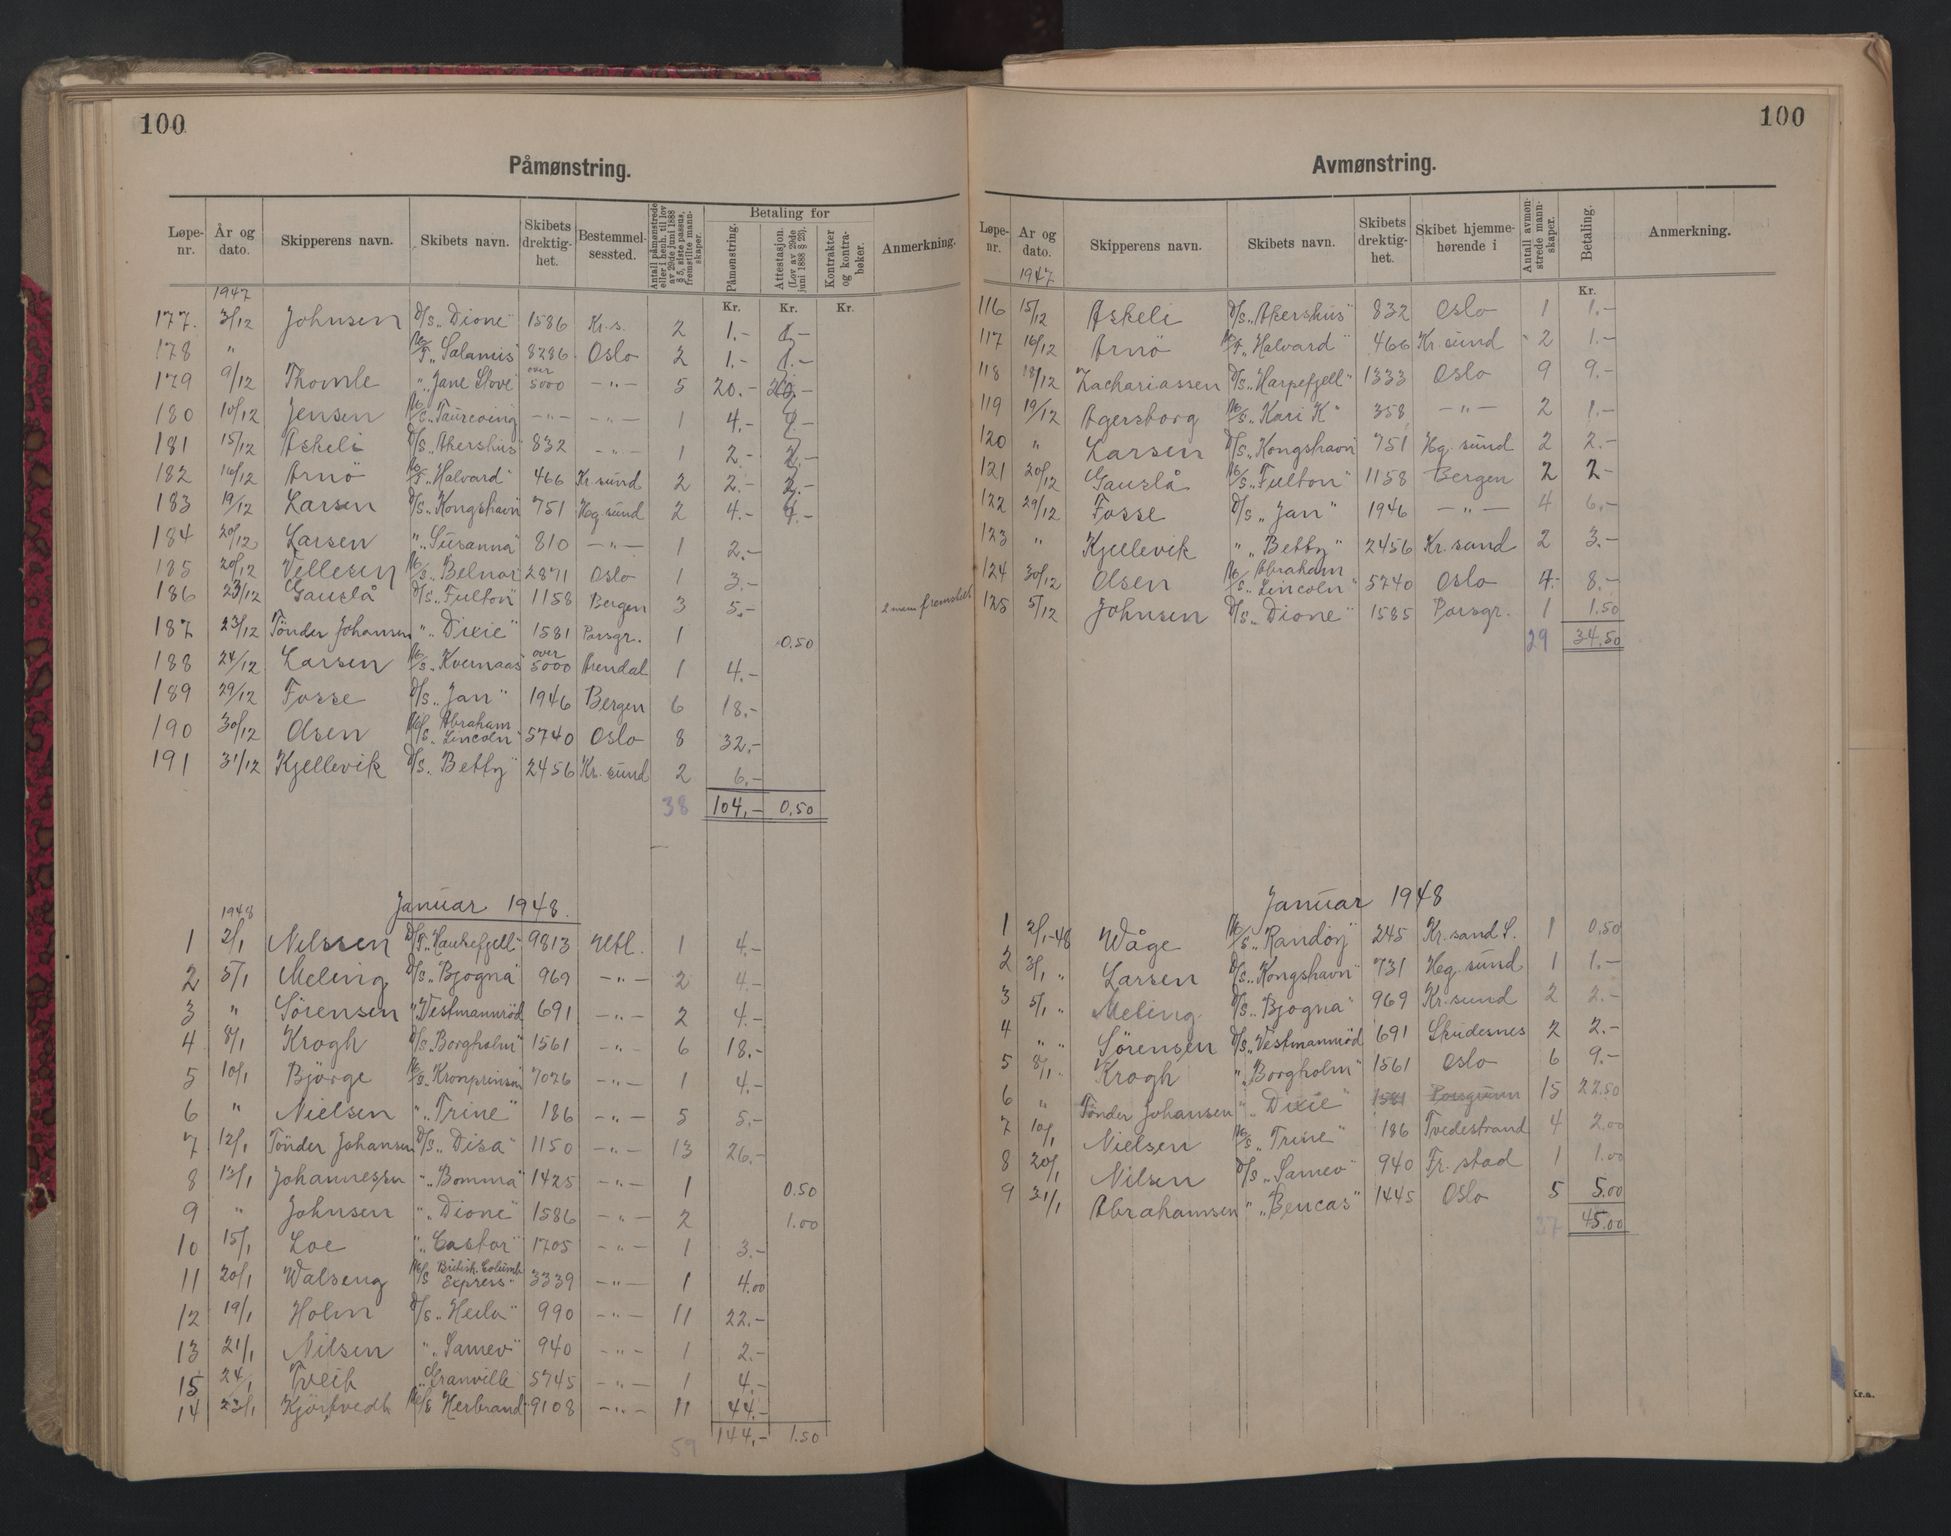 100
Påmønstring.
Løpe-nr. År og dato. Skipperens navn. Skibets navn. Skibets drektig-het. Bestemmel-sessted. Antall påmønstrede eller i henh. til lov av 29de juni 1888 § 5, siste passus, fremstilte mann-skaper. Betaling for Påmønstring. Attestasjon. (Lov av 29de juni 1888 § 23). Kontrakter og kontra-bøker. Anmerkning.
1947 Kr. Kr. Kr.
177. 3/12 Johnsen D/S „Dione" 1586 Kr.s. 2 1.- 1.-
178 " M/T „Salamis" 8286 Oslo 2 1.- 1.-
179 9/12 Thomle " „Jane Stove" over 5000 -"- 5 20.- 20.-
180 10/12 Jensen M/S „Taureving -"- -"- 1 4.-
181 15/12 Askeli D/S „Akershus" 832 -"- 1 2.- 2.-
182 16/12 Arnö M/T „Halvard" 466 Kr.sund 2 2.- 2.-
183 19/12 Larsen D/S „Kongshavn" 751 Hg.sund 2 4.- 4.-
184 20/12 Larsen " „Susanna" 810 -"- 1 2.-
185 20/12 Vellesen M/S „Belnor" 2871 Oslo 1 3.-
186 23/12 Gauslå D/S „Fulton" 1158 Bergen 3 5.- 2 menn fremstilt
187 23/12 Tönder Johansen " „Dixie" 1581 Porsgr. 1 0.50
188 24/12 Larsen M/S „Kvernaas" over 5000 Arendal 1 4.-
189 29/12 Fosse D/S „Jan" 1946 Bergen 6 18.-
190 30/12 Olsen M/S „Abraham Lincoln" 5740 Oslo 8 32.-
191 31/12 Kjellevik D/S „Betty" 2456 Kr.sund 2 6.-
38 104.- 0.50
Januar 1948.
1948
1 2/1 Nilssen D/T „Haukefjell" 9813 Utl. 1 4.-
2 5/1 Meling D/S „Bjogna" 969 -"- 2 4.-
3 " Sörensen " „Vestmannröd 691 -"- 2 4.-
4 8/1 Krogh D/S „Borgholm" 1561 -"- 6 18.-
5 10/1 Björge M/S „Kronprinsen" 7026 -"- 1 4.-
6 " Nielsen " „Trine" 186 -"- 5 5.-
7 12/1 Tönder Johansen D/S „Disa" 1150 -"- 13 26.-
8 13/1 Johannessen " „Bomma" 1425 -"- 1 0.50
9 " Johnsen " „Dione" 1586 -"- 2 1.00
10 15/1 Loe " „Castor" 1705 -"- 1 3.-
11 20/1 Walseng M/S „British. Columb. Express" 3339 -"- 1 4.00
12 19/1 Holm D/S „Heila" 990 -"- 11 22.-
13 21/1 Nilsen " „Samev" 940 -"- 1 2.-
15 24/1 Tveit „Granville 5745 -"- 1 4.-
14 23/1 Kjörtvedt M/S Herbrand 9108 -"- 11 44.-
59 144.- 1.50
100
Avmønstring.
Løpe-nr. År og dato. Skipperens navn. Skibets navn. Skibets drektig-het. Skibet hjemme-hørende i Antall avmøn-strede mann-skaper. Betaling. Anmerkning.
1947 Kr.
116 15/12 Askeli D/S „Akershus" 832 Oslo 1 1.-
117 16/12 Arnö M/T „Halvard" 466 Kr.sund 2 1.-
118 18/12 Zachariassen D/S „Harpefjell" 1333 Oslo 9 9.-
119 19/12 Agersborg M/S „Kari K" 358 -"- 2 1.-
120 " Larsen D/S „Kongshavn" 751 Hg.sund 2 2.-
121 20/12 Gauslå M/S „Fulton" 1158 Bergen 2 2-
122 29/12 Fosse D/S „Jan" 1946 -"- 4 6.-
123 " Kjellevik " „Betty" 2456 Kr.sund 2 3.-
124 30/12 Olsen M/S „Abraham Lincoln" 5740 Oslo 4 8.-
125 5/12 Johnsen D/S „Dione" 1585 Porsgr. 1 1.50
29 34.50
Januar 1948
1 2/1-48 Wåge M/S „Randöy" 245 Kr.sand S. 1 0.50
2 3/1 " Larsen D/S „Kongshavn" 731 Hg.sund 1 1.-
3 5/1 " Meling D/S „Bjogna" 969 Kr.sund 2 2.-
4 " " Sörensen D/S „Vestmannröd 691 Skudesnes 2 2.-
5 8/1 " Krogh " „Borgholm" 1561 Oslo 6 9.-
6 " Tönder Johansen " „Dixie" 1581 Porsgrunn 15 22.50
7 10/1 Nielsen M/S „Trine" 186 Tvedestrand 4 2.00
8 20/1 Nilsen D/S „Samev" 940 Fr.stad 1 1.00
9 21/1 Abrahamsen " „Bencas" 1445 Oslo 5 5.00
37 45.00
Kr.a.